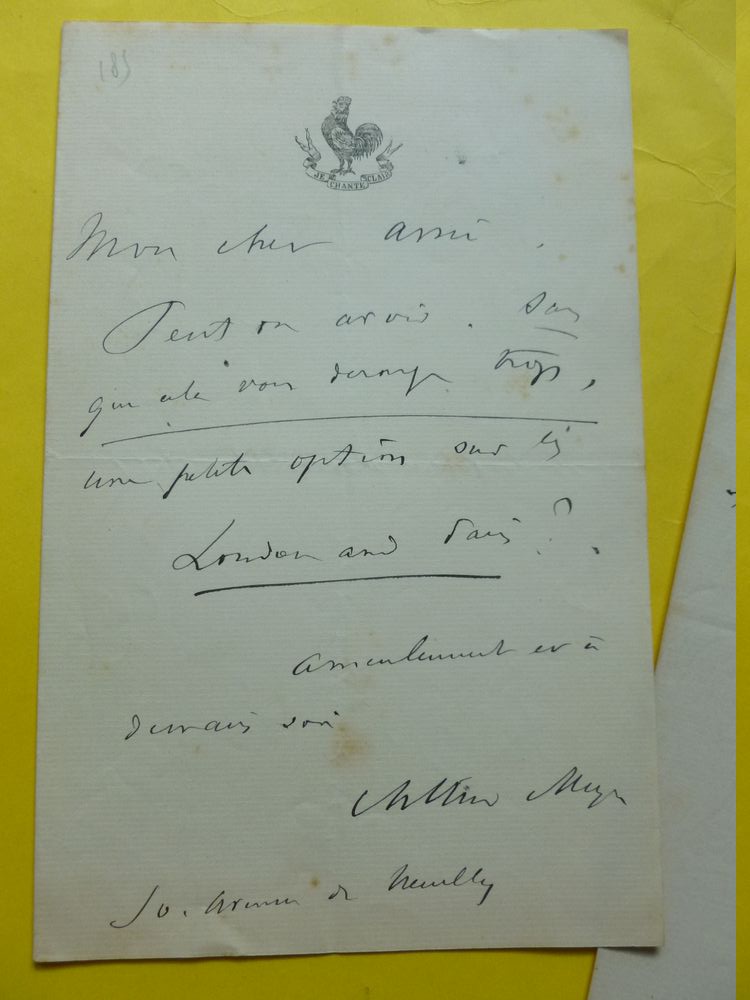 185
JE CHANTE CLAIR
Mon cher ami,
Peut on avoir. sans
que cela vous dérange trop,
une petite option sur les
London and Paris ?
Amicalement et à
demain soir
Arthur Meyer
50. Avenue de Neuilly